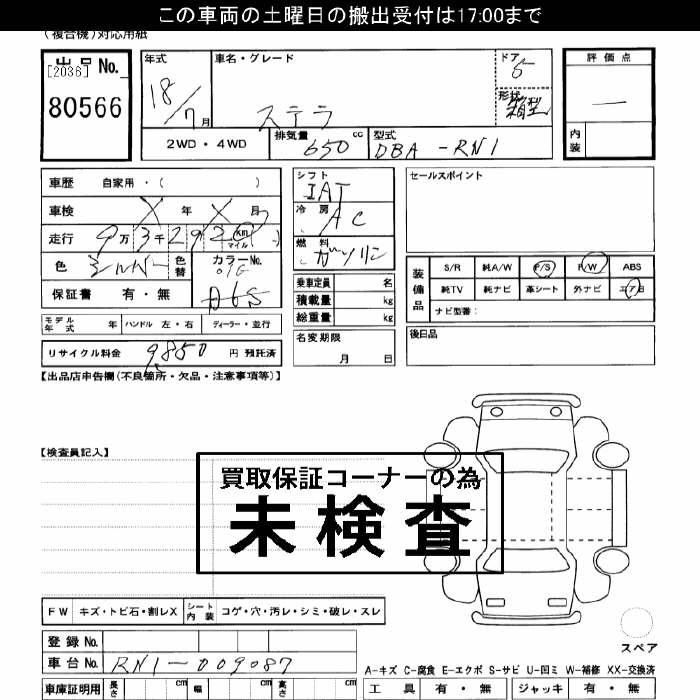 この車両の土曜日の搬出受付は17:00まで
(複合機)対応用紙
出品 No.
[2036]
80566
年式
18/7月
車名・グレード
ステラ
ドア
5
形状
箱型
評価点
—
内装
2WD・4WD
排気量
650 cc
型式
DBA-RN1
車歴 自家用・( )
車検 X 年 X 月
走行 9万3千292 km マイル
色 シルバー 色替 カラーNo.
D6S
保証書 有・無
モデル年式 年 ハンドル 左・右 ディーラー・並行
リサイクル料金 9,850 円 預託済
シフト
IAT
冷房
AC
燃料
ガソリン
乗車定員 名
積載量 kg
総重量 kg
名変期限
月 日
セールスポイント
装備品
S/R 純A/W P/S P/W ABS
純TV 純ナビ 革シート 外ナビ エアB
ナビ型番:
後日品
【出品店申告欄(不良箇所・欠品・注意事項等)】
【検査員記入】
買取保証コーナーの為
未検査
FW キズ・トビ石・割レX シート内装 コゲ・穴・汚レ・シミ・破レ・スレ
登録No.
車台No. RN1-009087
車庫証明用 長さ cm 幅 cm 高さ cm
スペア
A-キズ C-腐食 E-エクボ S-サビ U-凹ミ W-補修 XX-交換済
工具 有・無 ジャッキ 有・無